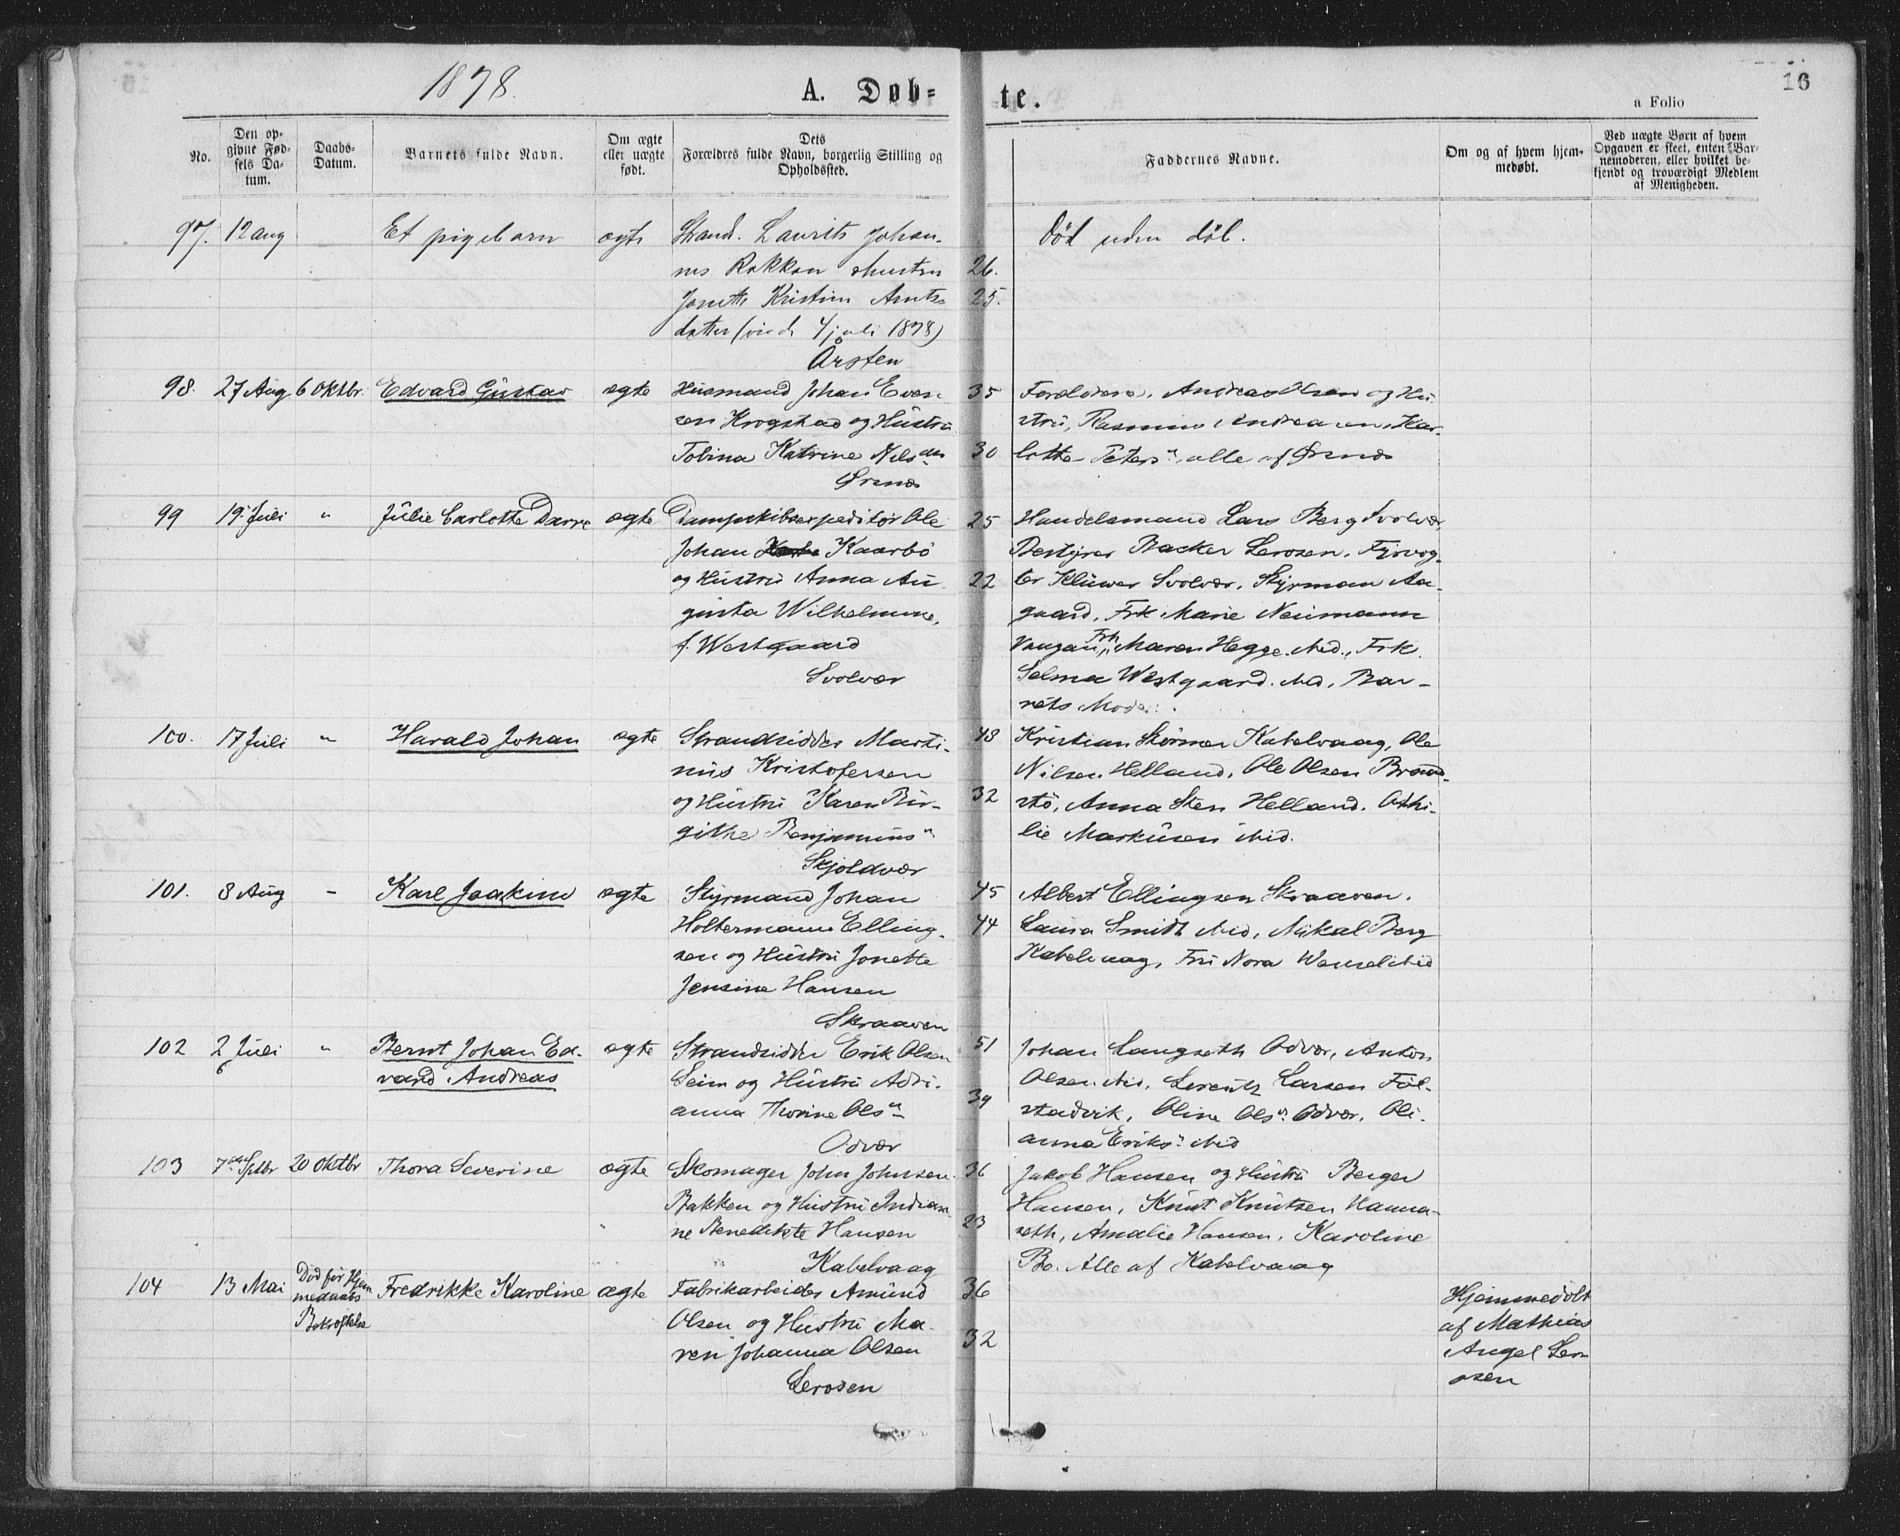 1878.
A. Døb-
te.
16
a Folio
No.
Den op-
givne Fød-
sels Da-
tum.
Daabs-
Datum.
Barnets fulde Navn.
Om ægte
eller uægte
født.
Dets
Forældres fulde Navn, borgerlig Stilling og
Opholdssted.
Faddernes Navne.
Om og af hvem hjem-
medøbt.
Ved uægte Børn af hvem
Opgaven er skeet, enten Bar-
nemoderen, eller hvilket be-
kjendt og troværdigt Medlem
af Menigheden.
97. 12 aug Et pigebarn ægte Strand. Laurits Johan-
nes Rakken 26.
Kristine Arnts- 25.
datter (viede 4 juli 1878)
Ørsten
Död uden dåb.
98. 27 Aug 6 Oktbr. Edvard Gustav ægte Husmand Johan Even- 35
sen Krogstad og Hustru
Tobina Katrine Nilsdtr 30
Ørsnæs
Forældrene, Andreas Olsen og Hu-
stru, Rasmus Andreassen, Kar-
lotte Peters" alle af Ørsnæs
99 19 Juli " Julie Carlotte Darre ægte Dampskibsexpeditör Ole 25
Johan Kaarbö
og Hustru Anna Au- 22
gusta Wilhelmine,
f. Westgaard
Svolvær
Handelsmand Lars Berg Svolvær,
Bestyrer Backer Lerosen, Fyrvog-
ter Klüwer Svolvær, Styrman Aa-
gaard, Frk Marie Neumann
Vaagan, Frk Maren Hegge ibid., Frk.
Selma Westgaard ibid, Bar-
nets Moder.
100. 17 Juli " Harald Johan ægte Strandsidder Marti- 48
nus Kristofersen
og Hustru Karen Bir- 32
githe Benjamins"
Skjoldvær
Kristian Störmer Kabelvaag, Ole
Nilsen Helland, Ole Olsen Brand-
stö, Anna Sten Helland. Othi-
lie Markusen ibid.
101. 8 Aug - Karl Joakim ægte Styrmand Johan 45
Holtermann Elling- 44
sen og Hustru Jonette
Jensine Hansen
Skraaven
Albert Ellingsen Skraaven.
Laura Smidt ibid, Mikal Berg
Kabelvaag, Fru Nora Wensel ibid
102 2 Juli " Bernt Johan Ed- ægte Strandsidder Erik Olsen 51
vard Andreas Seim og Hustru Adri-
anna Thorine Ols" 39
Odvær
Johan Langseth Odvær, Anton
Olsen ibid, Lorentz LarsenFöl-
stadvik, Oline Ols" Odvær, Oli-
anna Eriks" ibid
103 7de Sptbr 20 Oktbr Thora Severine ægte Skomager John Johnsen 36
Bakken og Hustru Indian-
ne Benedikte Hansen 23
Kabelvaag
Jakob Hansen og Hustru Berger
Hansen, Knut Knutsen Hanna-
seth, Amalie Hansen, Karoline
Bo. Alle af Kabelvaag
104 13 Mai Död för Hjem-
medaabs
Bekræftelse
Fredrikke Karoline ægte Fabrikarbeider Amund 36
Olsen og Hustru Ma- 32
ren Johanna Olsen
Lerosen
Hjemmedöbt
af Mathias
Angel Ler-
osen